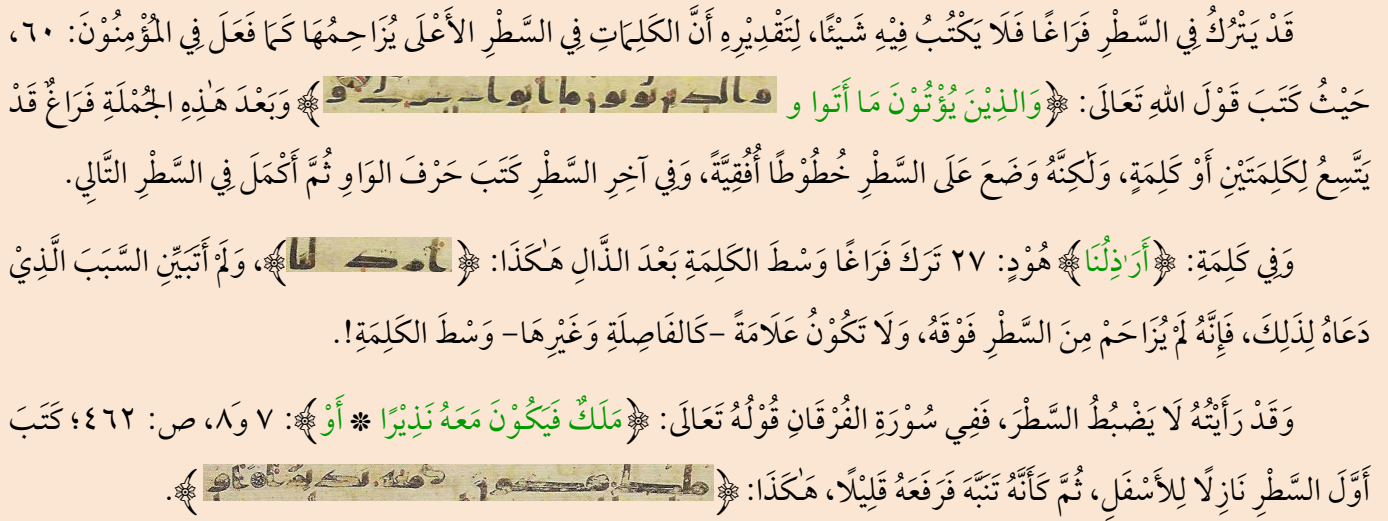 قَدْ يَتْرُكُ فِي السَّطْرِ فَرَاغًا فَلَا يَكْتُبُ فِيْهِ شَيْئًا، لِتَقْدِيْرِهِ أَنَّ الكَلِمَاتِ فِي السَّطْرِ الأَعْلَى يُزَاحِمُهَا كَمَا فَعَلَ فِي المُؤْمِنُوْنَ: ٦٠،
حَيْثُ كَتَبَ قَوْلَ اللهِ تَعَالَى: ﴿وَالذِيْنَ يُؤْتُوْنَ مَا أَتَوا و ﴾ وَبَعْدَ هَٰذِهِ الجُمْلَةِ فَرَاغٌ قَدْ
يَتَّسِعُ لِكَلِمَتَيْنِ أَوْ كَلِمَةٍ، وَلَٰكِنَّهُ وَضَعَ عَلَى السَّطْرِ خُطُوْطًا أُفُقِيَّةً، وَفِي آخِرِ السَّطْرِ كَتَبَ حَرْفَ الوَاوِ ثُمَّ أَكْمَلَ فِي السَّطْرِ التَّالِي.
وَفِي كَلِمَةِ: ﴿أَرَٰذِلُنَا﴾ هُوْدٍ: ٢٧ تَرَكَ فَرَاغًا وَسْطَ الكَلِمَةِ بَعْدَ الذَّالِ هَٰكَذَا: ﴿ ﴾، وَلَمْ أَتَبَيِّنِ السَّبَبَ الَّذِيْ
دَعَاهُ لِذَلِكَ، فَإِنَّهُ لَمْ يُزَاحَمْ مِنَ السَّطْرِ فَوْقَهُ، وَلَا تَكُوْنُ عَلَامَةً –كَالفَاصِلَةِ وَغَيْرِهَا– وَسْطَ الكَلِمَةِ!.
وَقَدْ رَأَيْتُهُ لَا يَضْبُطُ السَّطْرَ، فَفِي سُوْرَةِ الفُرْقَانِ قُوْلُهُ تَعَالَى: ﴿مَلَكٌ فَيَكُوْنَ مَعَهُ نَذِيْرًا * أَوْ﴾: ٧ وَ٨، ص: ٤٦٢؛ كَتَبَ
أَوَّلَ السَّطْرِ نَازِلًا لِلأَسْفَلِ، ثُمَّ كَأَنَّهُ تَنَبَّهَ فَرَفَعَهُ قَلِيْلًا، هَٰكَذَا: ﴿ ﴾.